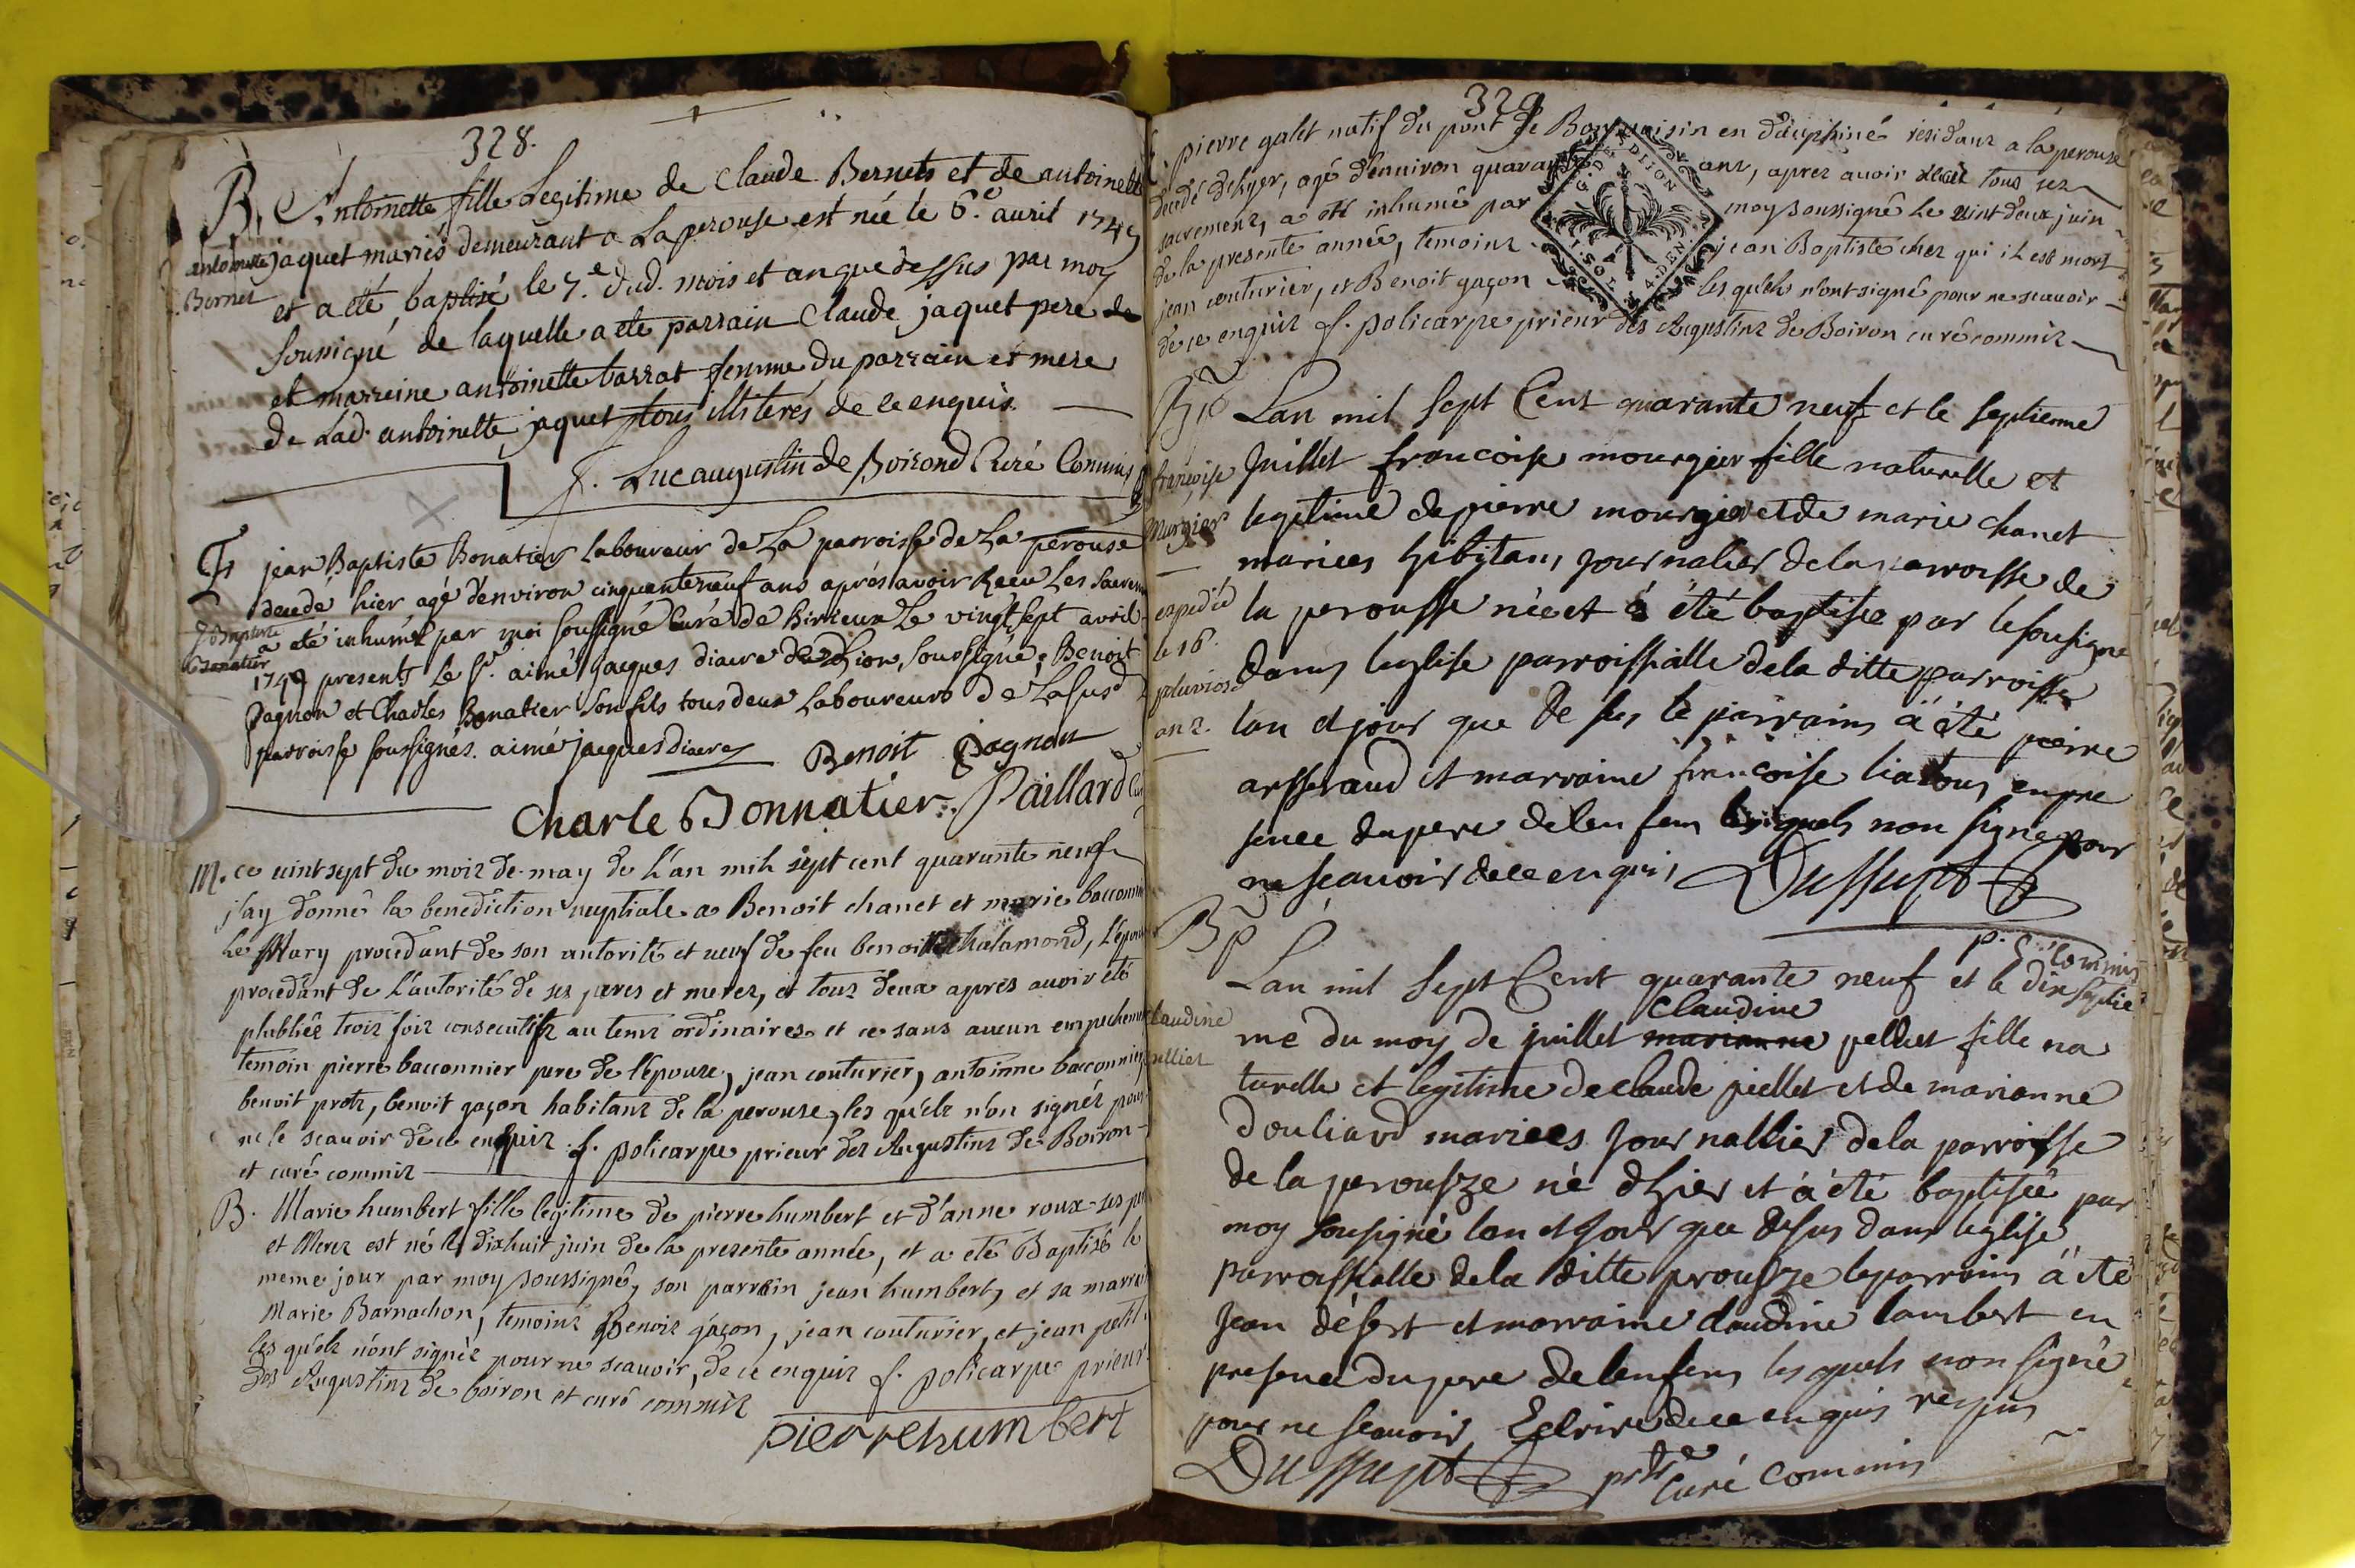 328.
B. Antoinette fille Legitime de Claude Bernets et de antoinette
antoinette jaquet mariés demeurant a La perouse est née le 6.e auril 1749
Bernet et a été baptisé le 7.e dud. mois et an que dessus par moy
soussigné de laquelle a ete parrain Claude jaquet pere de
et marreine antoinette barrat femme du parrain et mere
de Lad. antoinette jaquet tous illiterés de ce enquis.
f. Luc augustin de Boirond Curé Commis
jean Baptiste Bonatier Laboureur de La parroisse de La perouse
decedé hier agé d'environ cinquante neuf ans aprés avoir Receu Les Sacrem
J Baptiste a eté inhumé par moi soussigné Curé de Birieux Le vingt sept avril
Bonatier 1749 presents Le Sr. aimé jacques diacre de Lion, soussigné, Benoit
Pagnon et Charles Bonatier son fils tous deux Laboureurs de La susd
parroisse soussignés. aimé jacques diacre Benoit Pagnon
Charle Bonnatier. Paillard Curé
M. ce uint sept du mois de may de L'an mil sept cent quarante neuf
j'ay donné la benediction nuptiale a Benoit chanet et marie baconnie
Le Mary procedant de son autorité et ueuf de feu benoite Chalamond, L'epouse
procedant de L'autorité de ses peres et meres, et tous deux apres auoir été
plubliée trois fois consecutifs au tems ordinaires et ce sans aucun empechement
temoin pierre baconnier pere de l'épouse, jean couturier, antoinne baconnier,
benoit prots, benoit gaçon habitans de la perouse, les qu'els n'on signés pour
ne le scauoir de ce enquis f. policarpe prieur des Augustins de Boiron
et curé commis
B. Marie humbert fille legitime de pierre humbert et d'anne roux ses pe
et Meres est né le dixhuit juin de la presente année, et a eté Baptisé le
meme jour par moy soussigné, son parrain jean humbert, et sa marrai
Marie Barnachon, temoins Benoit gaçon, jean couturier, et jean petit
les qu'els n'ont signés pour ne scauoir, de ce enquis f. policarpe prieur
des Augustins de boiron et curé commis
pierre humbert
329
pierre galet natif du pont de Bonuoisin en dauphiné residans a la perouse
décedé dehyer, agé d'enuiron quarante ans, apres auoir recit tous ses
sacremens, a eté inhumé par moy soussigné Le uint deux juin
de la presente année, temoins jean Baptiste chez qui il est mort
jean couturier, et Benoit gaçon les qu'els n'ont signé pour ne scauoir
de ce enquis f. policarpe prieur des Augustins de Boiron curé commis
G. DE DIJON
1. SOL 4. DEN.
Bp Lan mil sept Cent quarante neuf et le septieme
francoise Juillet francoise mourgier fille naturelle et
Murgier legitime de pierre mourgier et de marie chanet
mariees habitans journalier de la parroisse de
expediée la perousse née et à été baptisée par le sousigne
le 16. dans leglise parroissialle de la ditte parroisse
pluviose lan et jour que de sus le parrains à été pierre
an 2. arsseraud et marraine francoise liatous en pre
sence du pere de len fem lesquels non signe pour
ne scauoir de ce enquis Dussupt
p. C. Commis
Bp Lan mil sept Cent quarante neuf et le dix septie
claudine me du moy de juillet marianne claudine pellet fille na
pelliet turelle et legitime de claude piellet et de marianne
douliard mariees journallier de la parroisse
de la perousze né dhier et à été baptisée par
moy sousigné lan et jour que desus dans leglise
parroissialle de la ditte prousze le parrains à été
Jean désert et marraine claudine lambert en
presence du pere de lenfens les quels non signé
pour ne scauoir Ecrire de ce enquis requis
Dussupt ptre Curé Commis